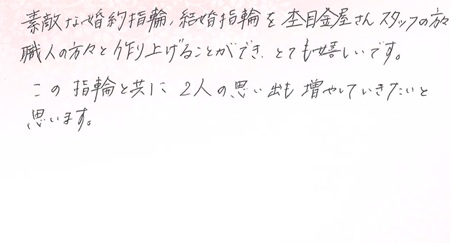 素敵な婚約指輪、結婚指輪を杢目金屋さんスタッフの方々
職人の方々と作り上げることができ、とても嬉しいです。
この指輪と共に2人の思い出も増やしていきたいと
思います。